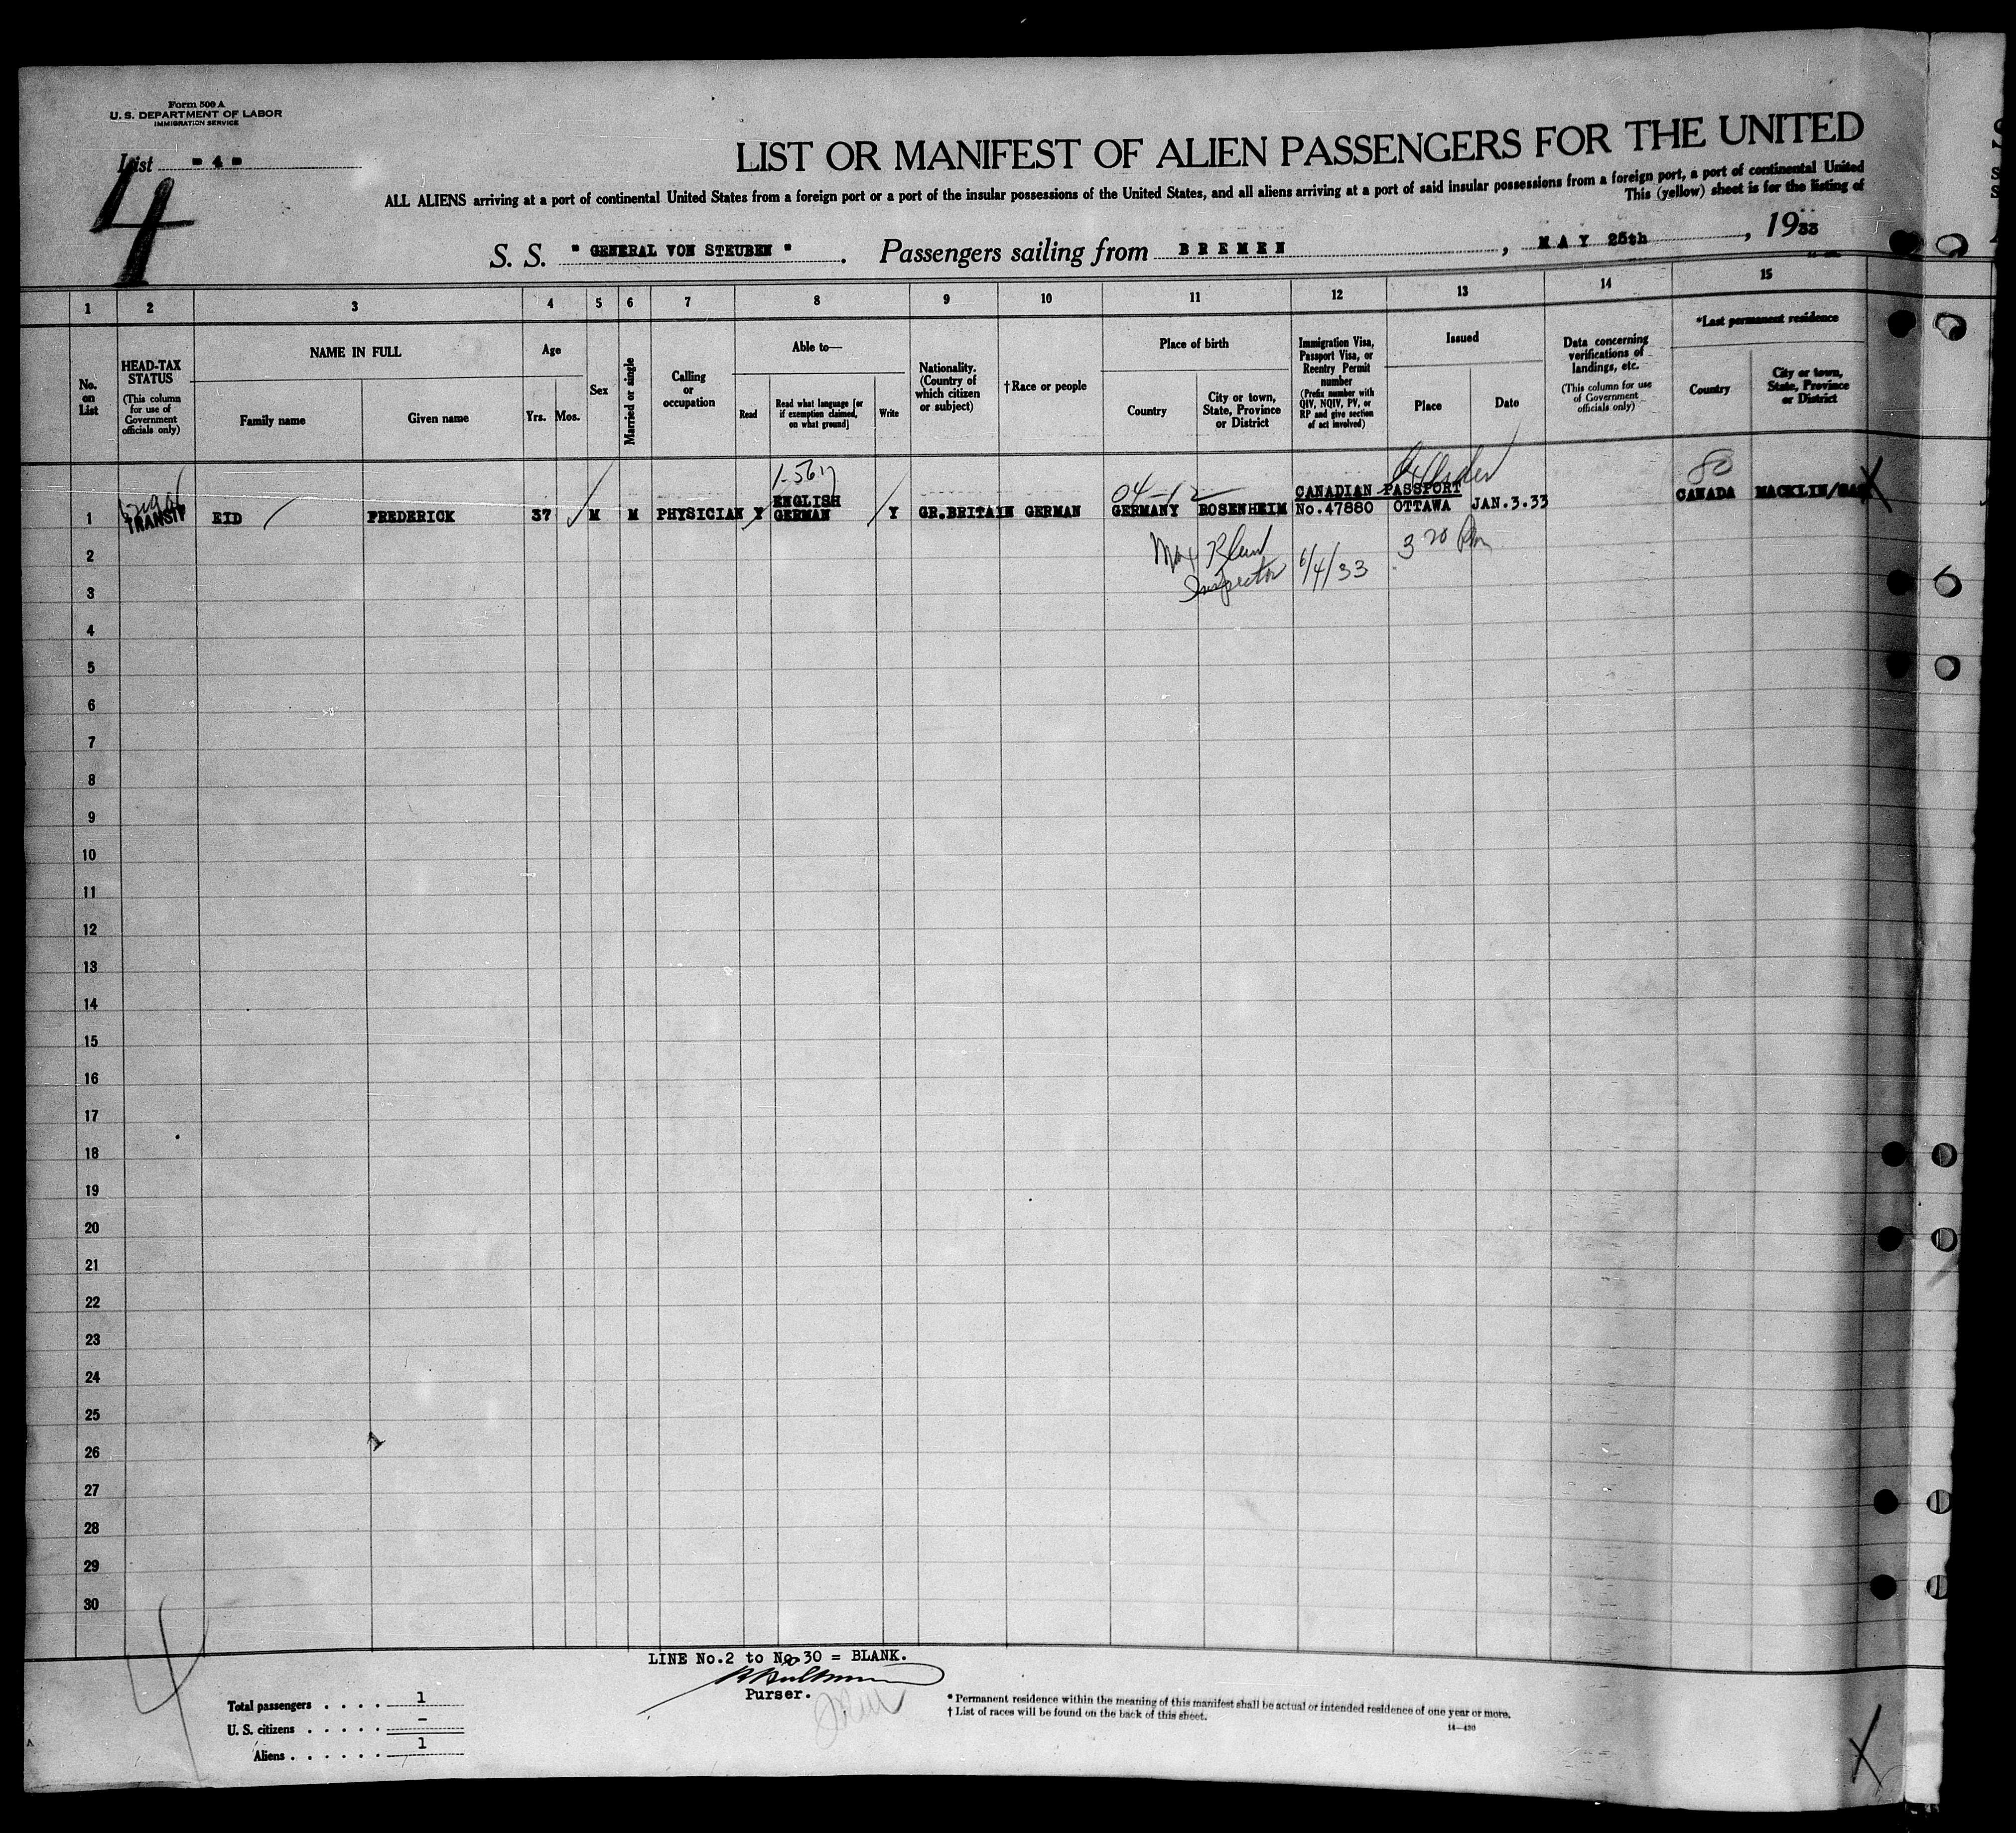 Form 500 A
U. S. DEPARTMENT OF LABOR
IMMIGRATION SERVICE
List " 4 "
4
LIST OR MANIFEST OF ALIEN PASSENGERS FOR THE UNITED
ALL ALIENS arriving at a port of continental United States from a foreign port or a port of the insular possessions of the United States, and all aliens arriving at a port of said insular possessions from a foreign port, a port of continental United
This (yellow) sheet is for the listing of
S. S. " GENERAL VON STEUBEN " . Passengers sailing from BREMEN , MAY 25th , 1933
1 2 3 4 5 6 7 8 9 10 11 12 13 14 15
No. on List
HEAD-TAX STATUS
(This column for use of Government officials only)
NAME IN FULL
Family name
Given name
Age
Yrs. Mos.
Sex
Married or single
Calling or occupation
Able to—
Read
Read what language [or if exemption claimed, on what ground]
Write
Nationality. (Country of which citizen or subject)
† Race or people
Place of birth
Country
City or town, State, Province or District
Immigration Visa, Passport Visa, or Reentry Permit number
(Prefix number with QIV, NQIV, PV, or RP and give section of act involved)
Issued
Place
Date
Data concerning verifications of landings, etc.
(This column for use of Government officials only)
*Last permanent residence
Country
City or town, State, Province or District
80
CANADIAN PASSPORT
1 TRANSIT EID FREDERICK 37 M M PHYSICIAN Y ENGLISH GERMAN Y GR.BRITAIN GERMAN GERMANY ROSENHEIM No.47880 OTTAWA JAN.3.33 CANADA MACKLIN/SASK
Inspector 6/4/33
3 20 Pm
2
3
4
5
6
7
8
9
10
11
12
13
14
15
16
17
18
19
20
21
22
23
24
25
26
27
28
29
30
LINE No.2 to No 30 = BLANK.
Purser.
Total passengers . . . . 1
U. S. citizens . . . . . –
Aliens . . . . . . 1
* Permanent residence within the meaning of this manifest shall be actual or intended residence of one year or more.
† List of races will be found on the back of this sheet.
14—430